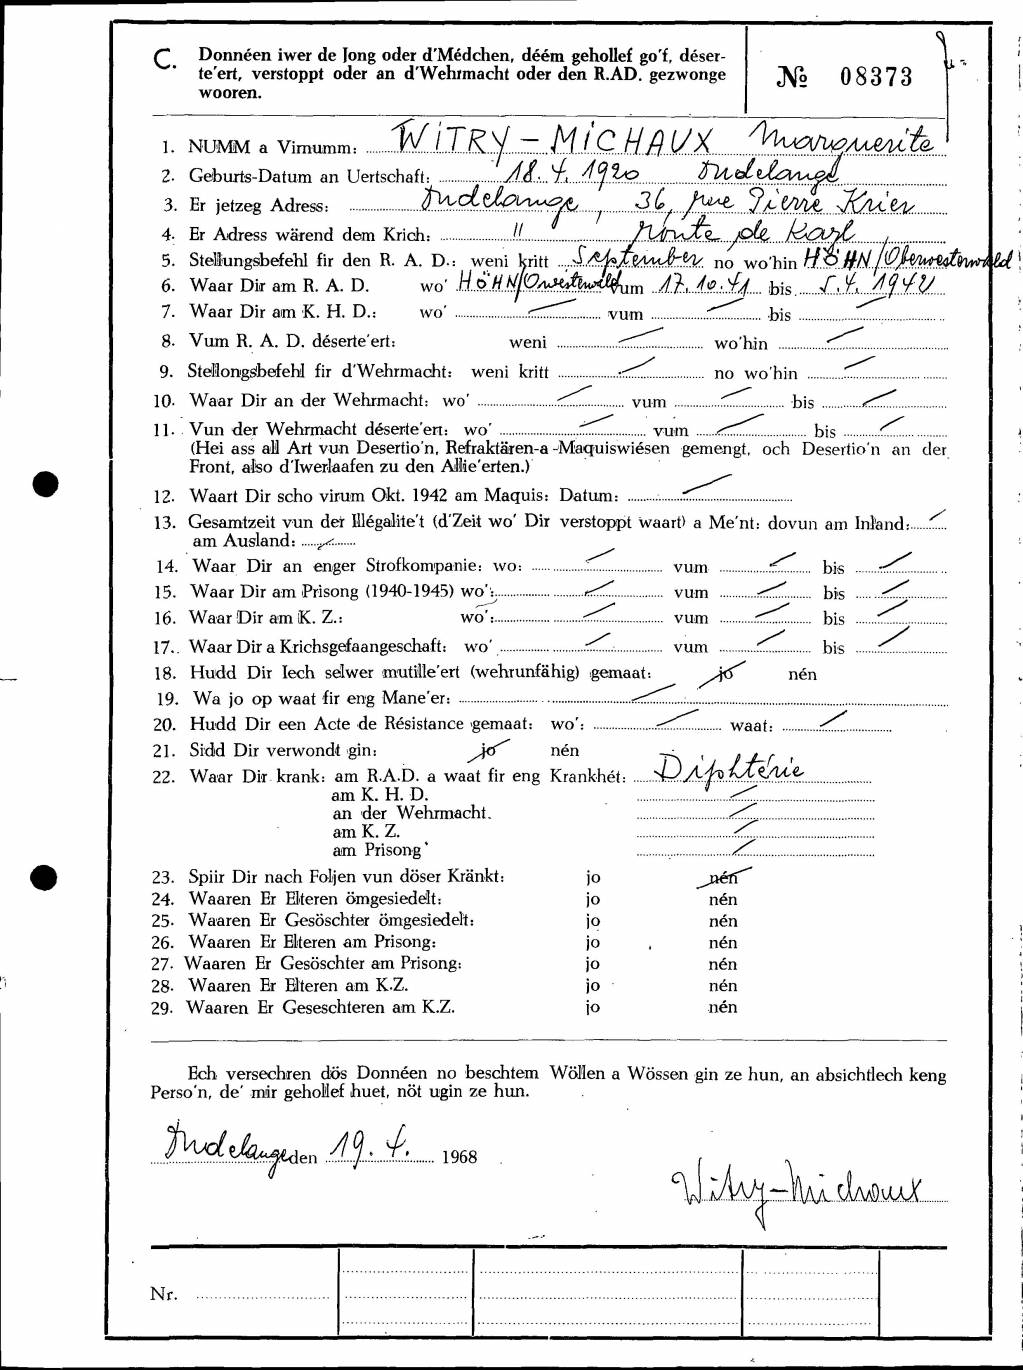 C. Donnéen iwer de Jong oder d'Médchen, déém gehollef go'f, déser-
te'ert, verstoppt oder an d'Wehrmacht oder den R.AD. gezwonge
wooren.
№ 08373
1. NUMM a Virnumm: WiTRY – MiCHAUX Marguerite
2. Geburts-Datum an Uertschaft: 18. 4. 1920 Dudelange
3. Er jetzeg Adress: Dudelange, 36, rue Pierre Krier
4. Er Adress wärend dem Krich: " route de Kayl
5. Stellungsbefehl fir den R. A. D.: weni kritt September no wo'hin HÖHN/Oberwesterwald
6. Waar Dir am R. A. D. wo' HÖHN/Owesterwald vum 17.10.41 bis 5.4.1942
7. Waar Dir am K. H. D.: wo' vum bis
8. Vum R. A. D. déserte'ert: weni wo'hin
9. Stellongsbefehl fir d'Wehrmacht: weni kritt no wo'hin
10. Waar Dir an der Wehrmacht: wo' vum bis
11. Vun der Wehrmacht déserte'ert: wo' vum bis
(Hei ass all Art vun Desertio'n, Refraktären-a-Maquiswiésen gemengt, och Desertio'n an der
Front, also d'Iwerlaafen zu den Allie'erten.)
12. Waart Dir scho virum Okt. 1942 am Maquis: Datum:
13. Gesamtzeit vun der Illégalite't (d'Zeit wo' Dir verstoppt waart) a Me'nt: dovun am Inland:
am Ausland:
14. Waar Dir an enger Strofkompanie: wo: vum bis
15. Waar Dir am Prisong (1940-1945) wo': vum bis
16. Waar Dir am K. Z.: wo': vum bis
17. Waar Dir a Krichsgefaangeschaft: wo' vum bis
18. Hudd Dir Iech selwer mutille'ert (wehrunfähig) gemaat: jo nén
19. Wa jo op waat fir eng Mane'er:
20. Hudd Dir een Acte de Résistance gemaat: wo': waat:
21. Sidd Dir verwondt gin: jo nén
22. Waar Dir krank: am R.A.D. a waat fir eng Krankhét: Diphtérie
am K. H. D.
an der Wehrmacht.
am K. Z.
am Prisong
23. Spiir Dir nach Foljen vun döser Kränkt: jo nén
24. Waaren Er Elteren ömgesiedelt: jo nén
25. Waaren Er Gesöschter ömgesiedelt: jo nén
26. Waaren Er Elteren am Prisong: jo nén
27. Waaren Er Gesöschter am Prisong: jo nén
28. Waaren Er Elteren am K.Z. jo nén
29. Waaren Er Geseschteren am K.Z. jo nén
Ech versechren dös Donnéen no beschtem Wöllen a Wössen gin ze hun, an absichtlech keng
Perso'n, de' mir gehollef huet, nöt ugin ze hun.
Dudelange den 19. 4. 1968
Witry-Michaux
Nr.